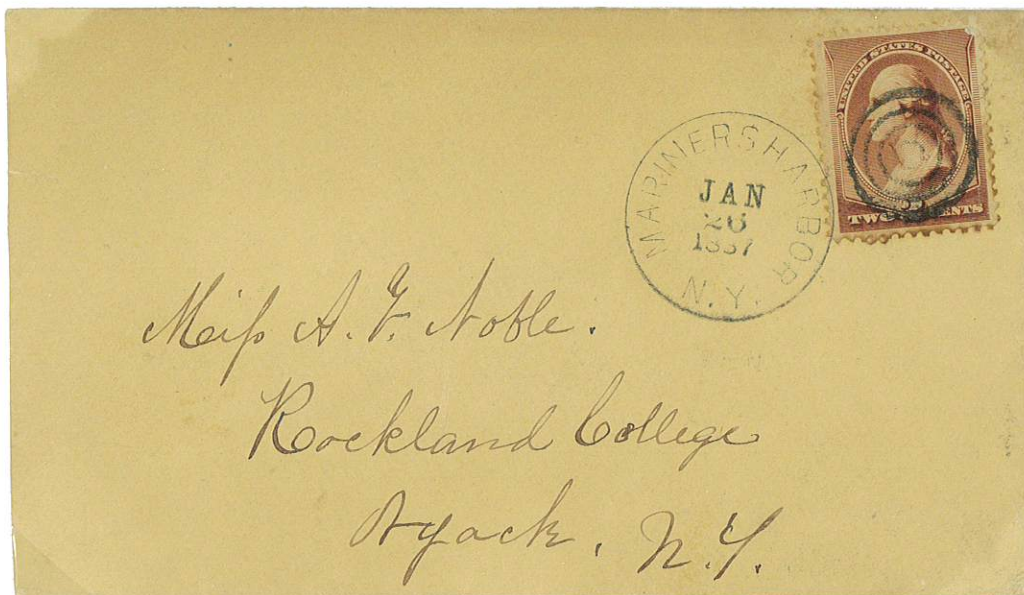 UNITED STATES POSTAGE
TWO CENTS
MARINERS HARBOR
JAN
26
1887
N.Y.
Miſs A. F. Noble.
Rockland College
Nyack, N.Y.